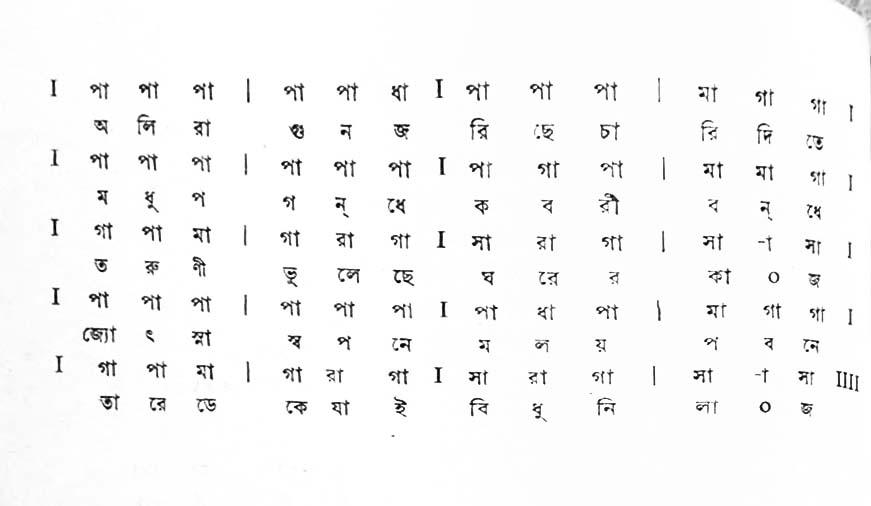 I পা পা পা | পা পা ধা I পা পা পা | মা গা গা I
অ লি রা গু ন জ রি ছে চা রি দি তে
I পা পা পা | পা পা পা I পা গা পা | মা মা গা I
ম ধু প গ ন্ ধে ক ব রী ব ন্ ধে
I গা পা মা | গা রা গা I সা রা গা | সা -া সা I
ত রু ণী ভু লে ছে ঘ রে র কা ০ জ
I পা পা পা | পা পা পা I পা ধা পা | মা গা গা I
জ্যো ৎ স্না স্ব প নে ম ল য় প ব নে
I গা পা মা | গা রা গা I সা রা গা | সা -া সা IIII
তা রে ডে কে যা ই বি ধু নি লা ০ জ